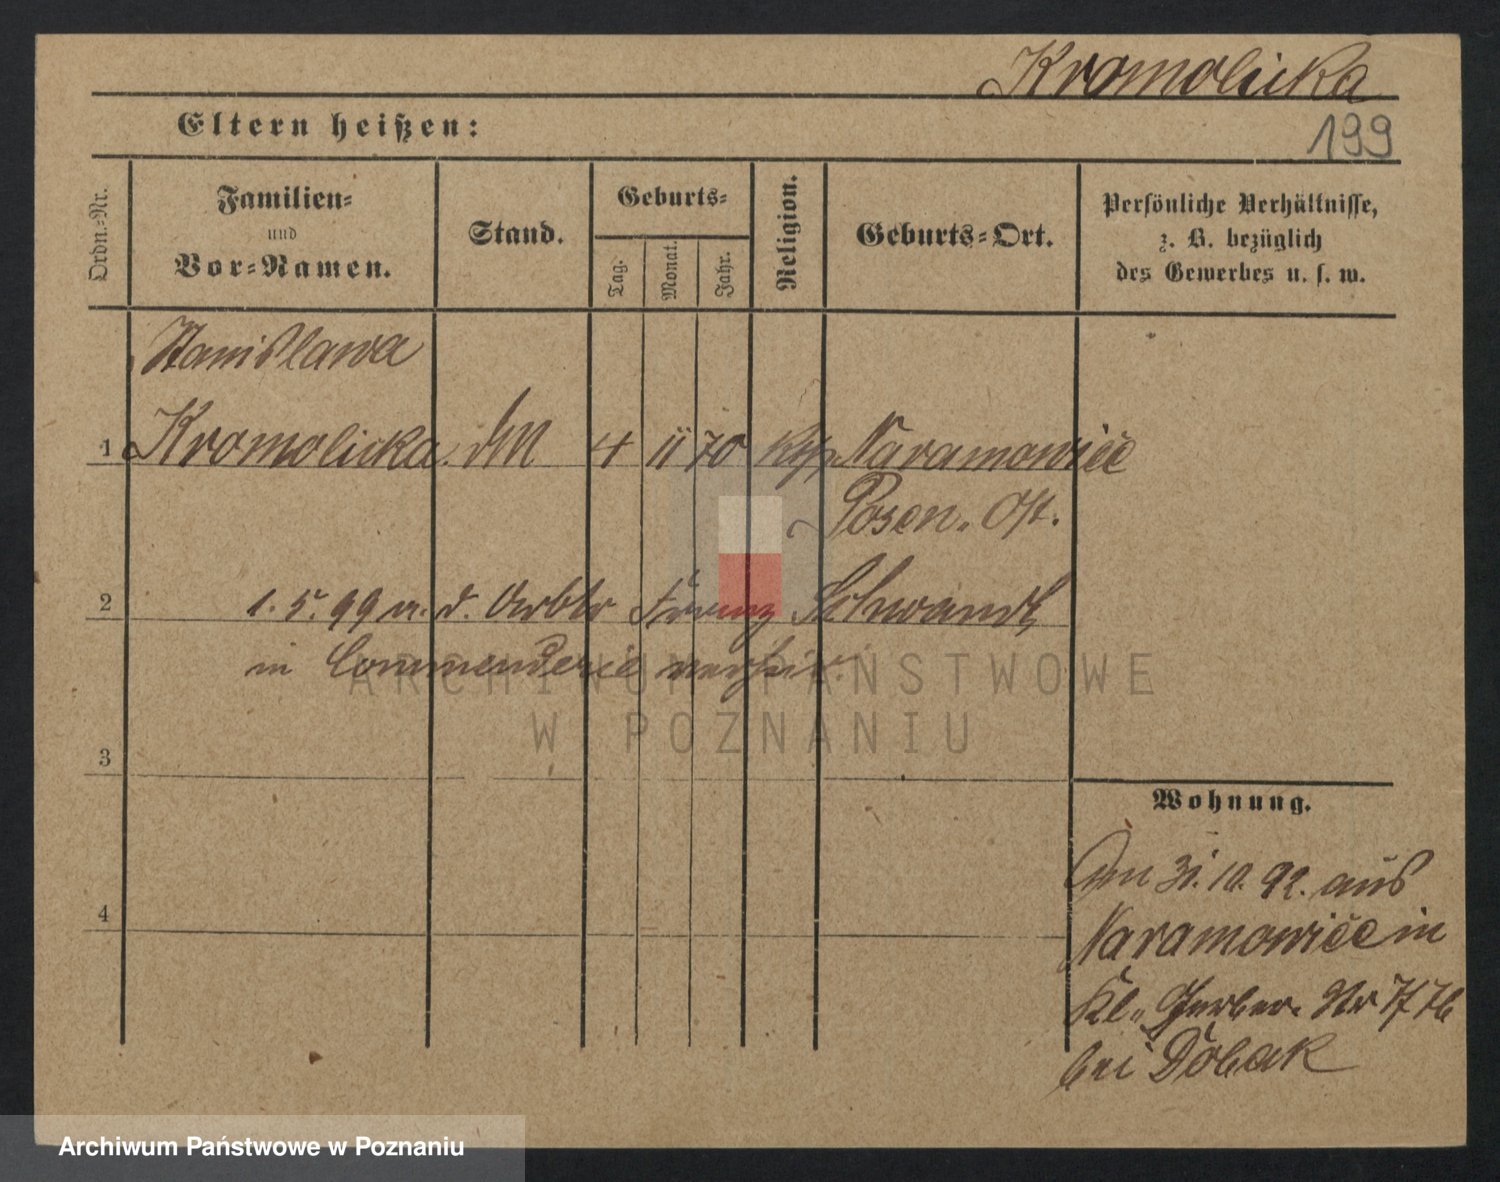 Kromolicka
Eltern heißen:
199
Ordn.=Nr.
Familien=
und
Vor=Namen.
Stand.
Geburts=
Tag.
Monat.
Jahr.
Religion.
Geburts=Ort.
Persönliche Verhältnisse,
z. B. bezüglich
des Gewerbes u. s. w.
Stanislawa
1 Kromolicka 4 11 70 Naramowice
Posen. Ost.
2 1. 5. 99 m. d. Arbtr Franz
in Commenderie
ARCHIWUM PAŃSTWOWE
W POZNANIU
3
Wohnung.
4
Am 31. 10. 92. aus
Naramowice in
Kl. Gerber. Nr
bei
Archiwum Państwowe w Poznaniu